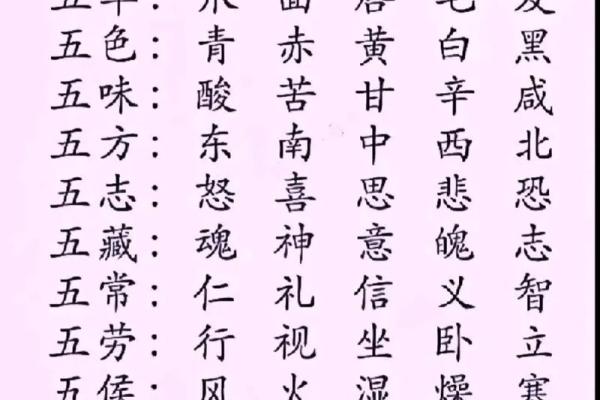 五华：爪 面 唇 毛 发
五色：青 赤 黄 白 黑
五味：酸 苦 甘 辛 咸
五方：东 南 中 西 北
五志：怒 喜 思 悲 恐
五藏：魂 神 意 魄 志
五常：仁 礼 信 义 智
五劳：行 视 坐 卧 立
五侯：风 火 湿 燥 寒